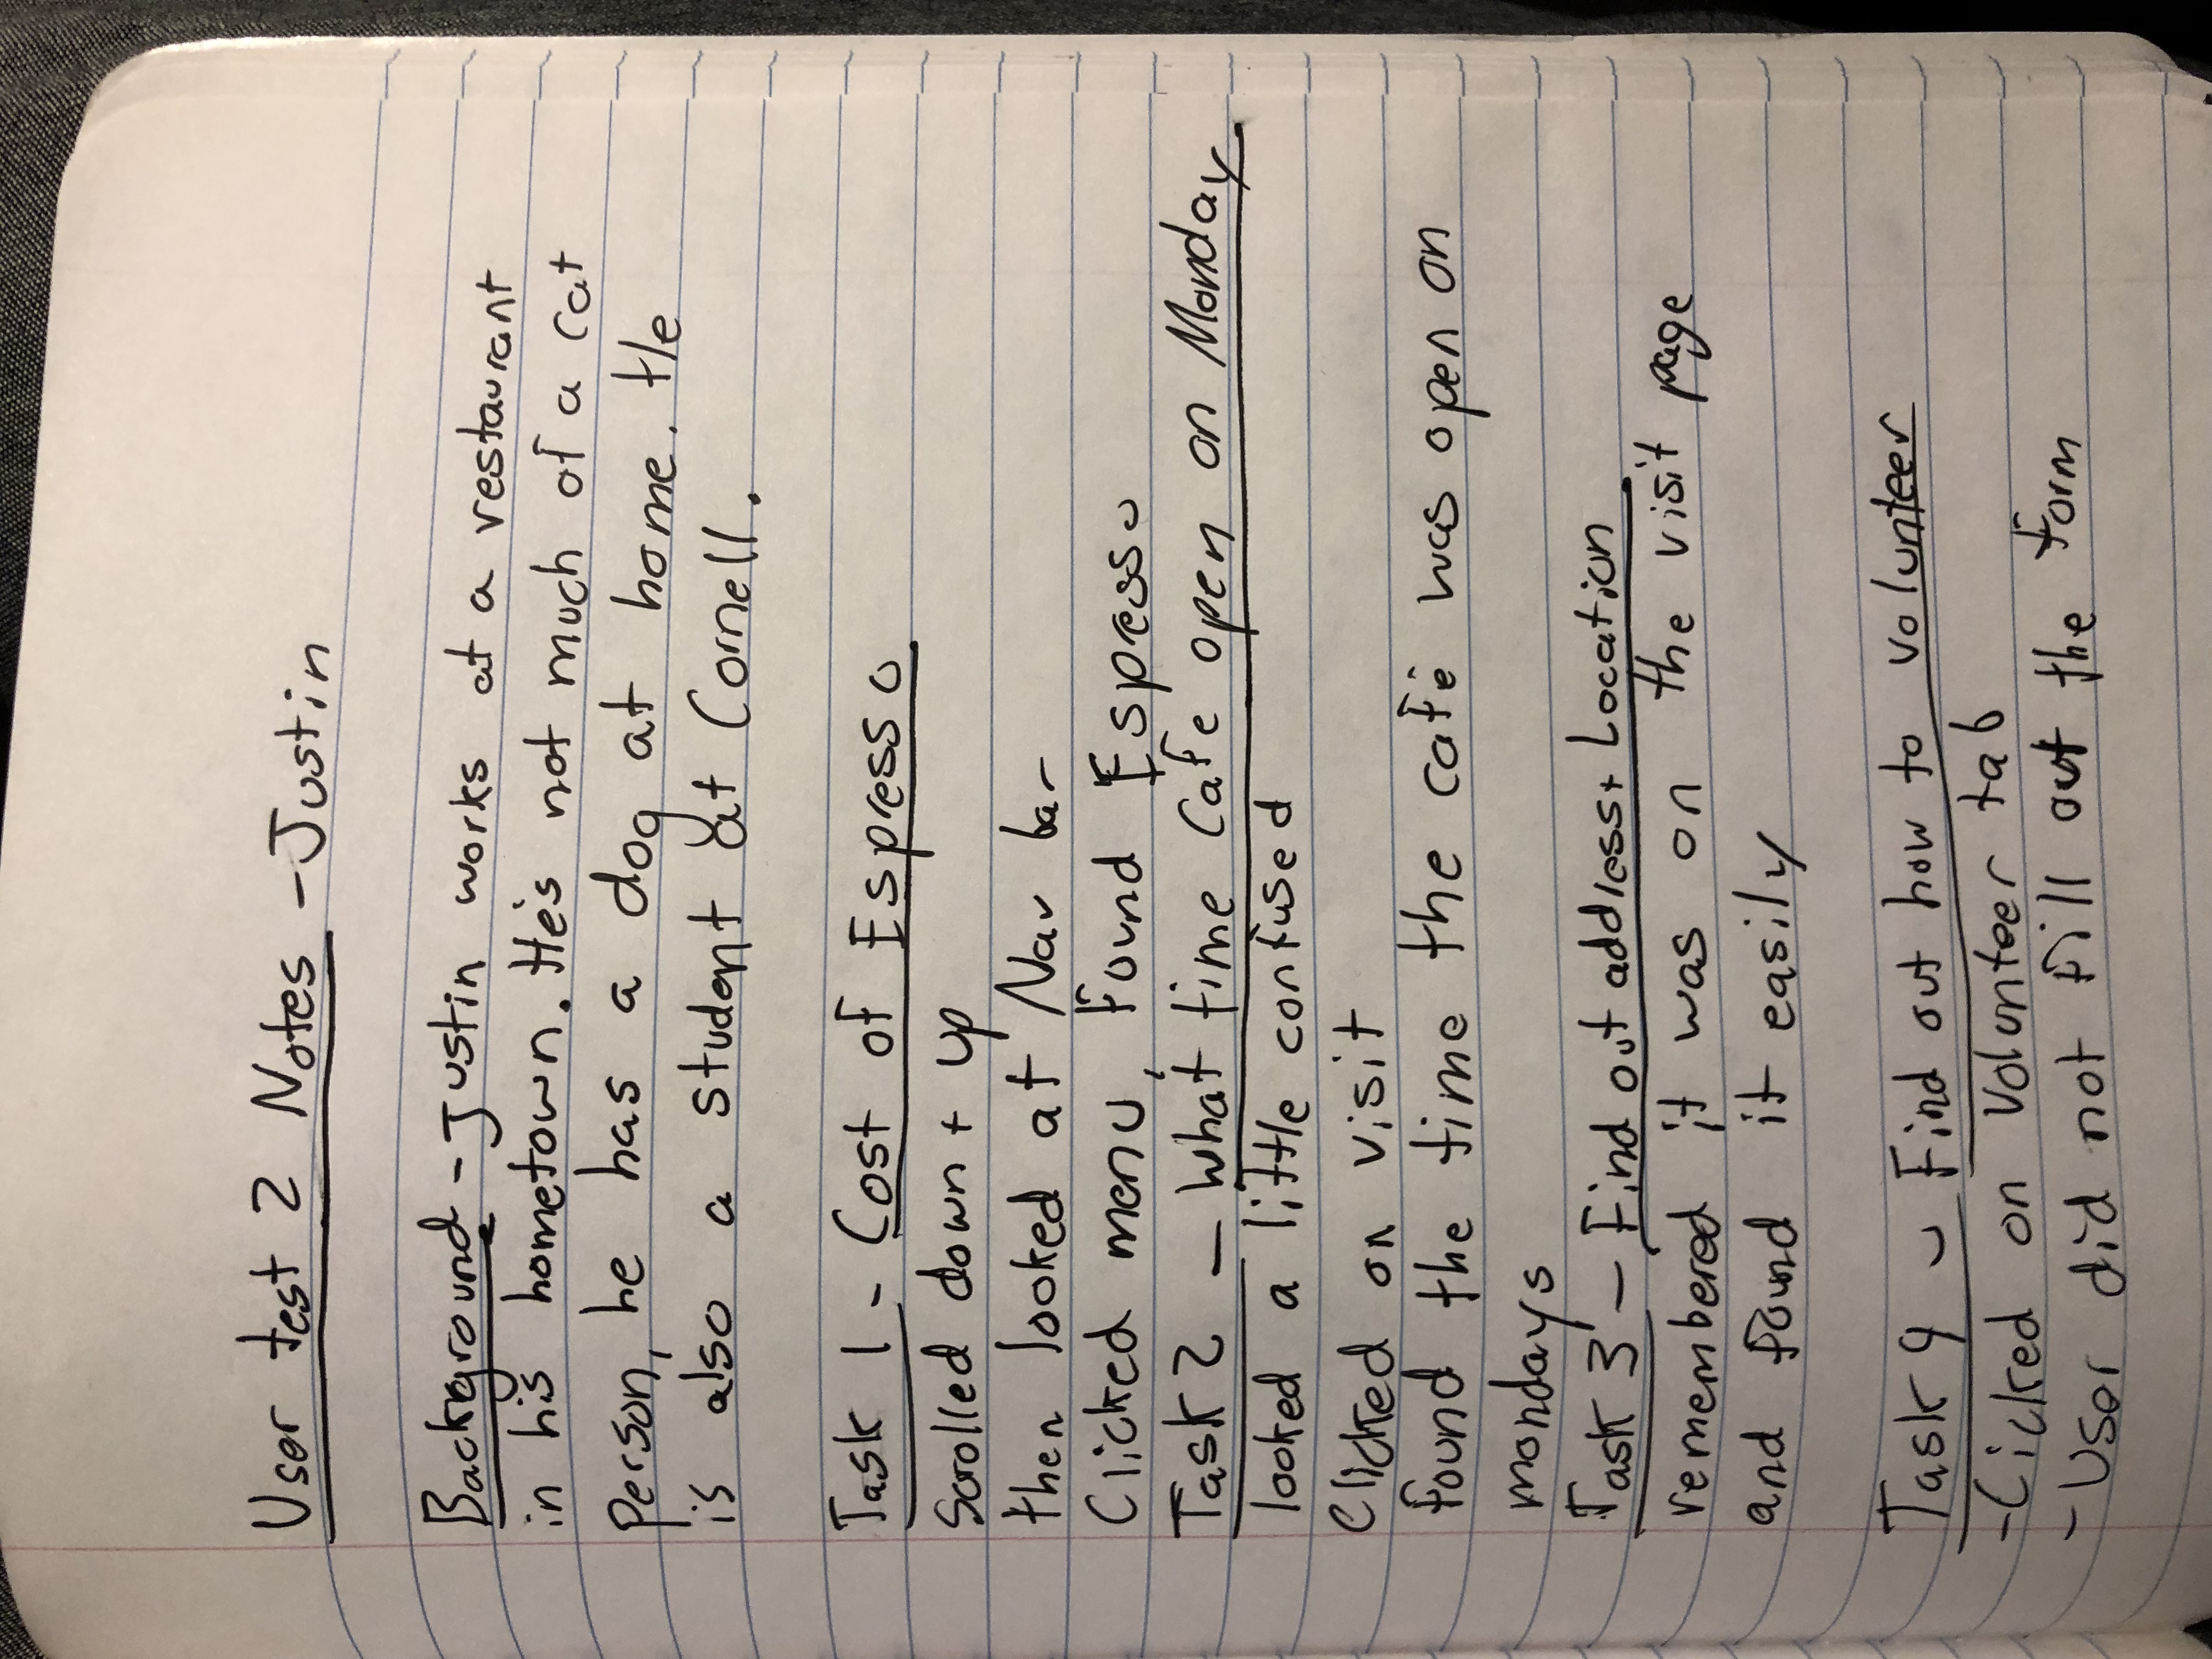 User test 2 Notes - Justin
Background - Justin works at a restaurant
in his hometown. He's not much of a cat
person, he has a dog at home. He
is also a student at Cornell.
Task 1 - Cost of Espresso
Scrolled down + up
then looked at Nav bar
Clicked menu, Found Espresso
Task 2 - What time Cafe open on Monday
looked a little confused
Clicked on visit
found the time the café was open on
mondays
Task 3 - Find out address + Location
remembered it was on the visit page
and found it easily
Task 4 - Find out how to volunteer
- Cicked on Volunteer tab
- User did not Fill out the Form